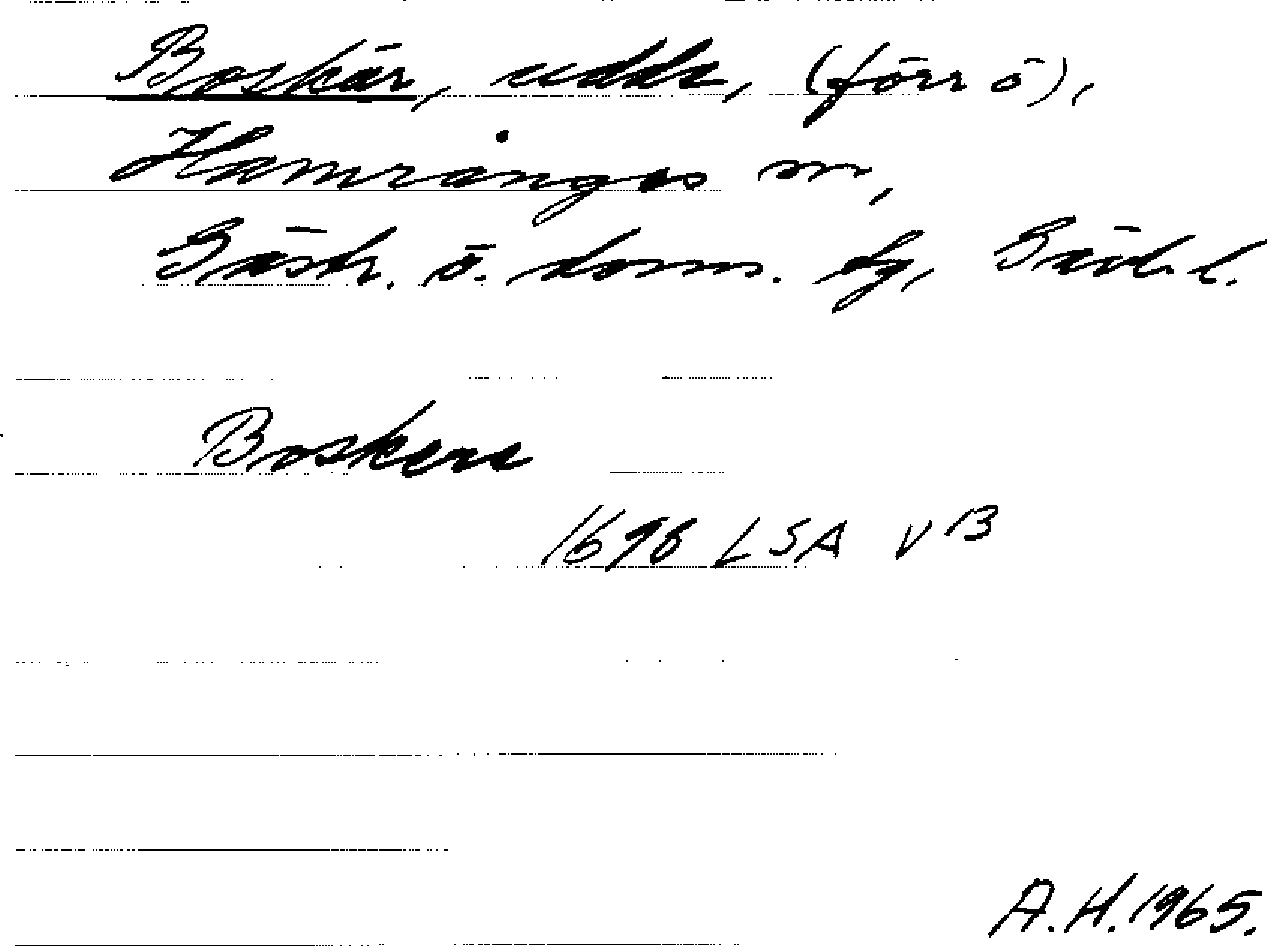 Boskär, udde, (förr ö),
Hamrånges sn,
Gästr. ö. doms. tg, Gävleb. l.
Boskere
1698 LSA V 13
A.H. 1965.